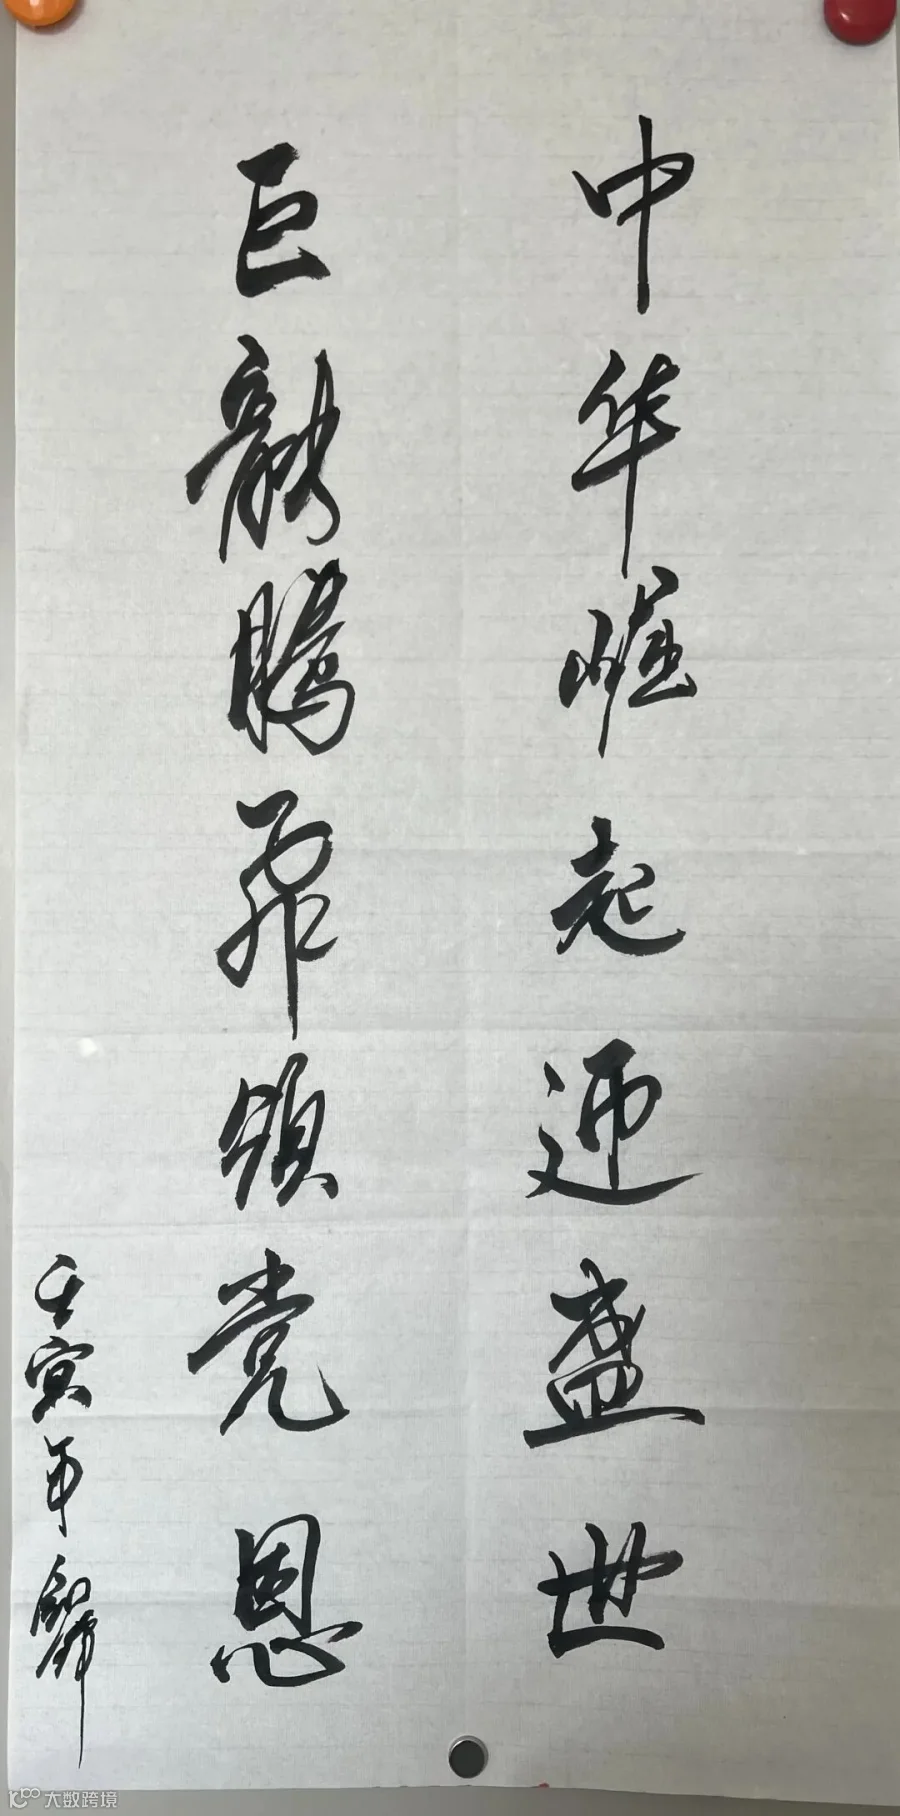 中华崛起迎盛世
巨龙腾飞领党恩
壬寅年
大数跨境